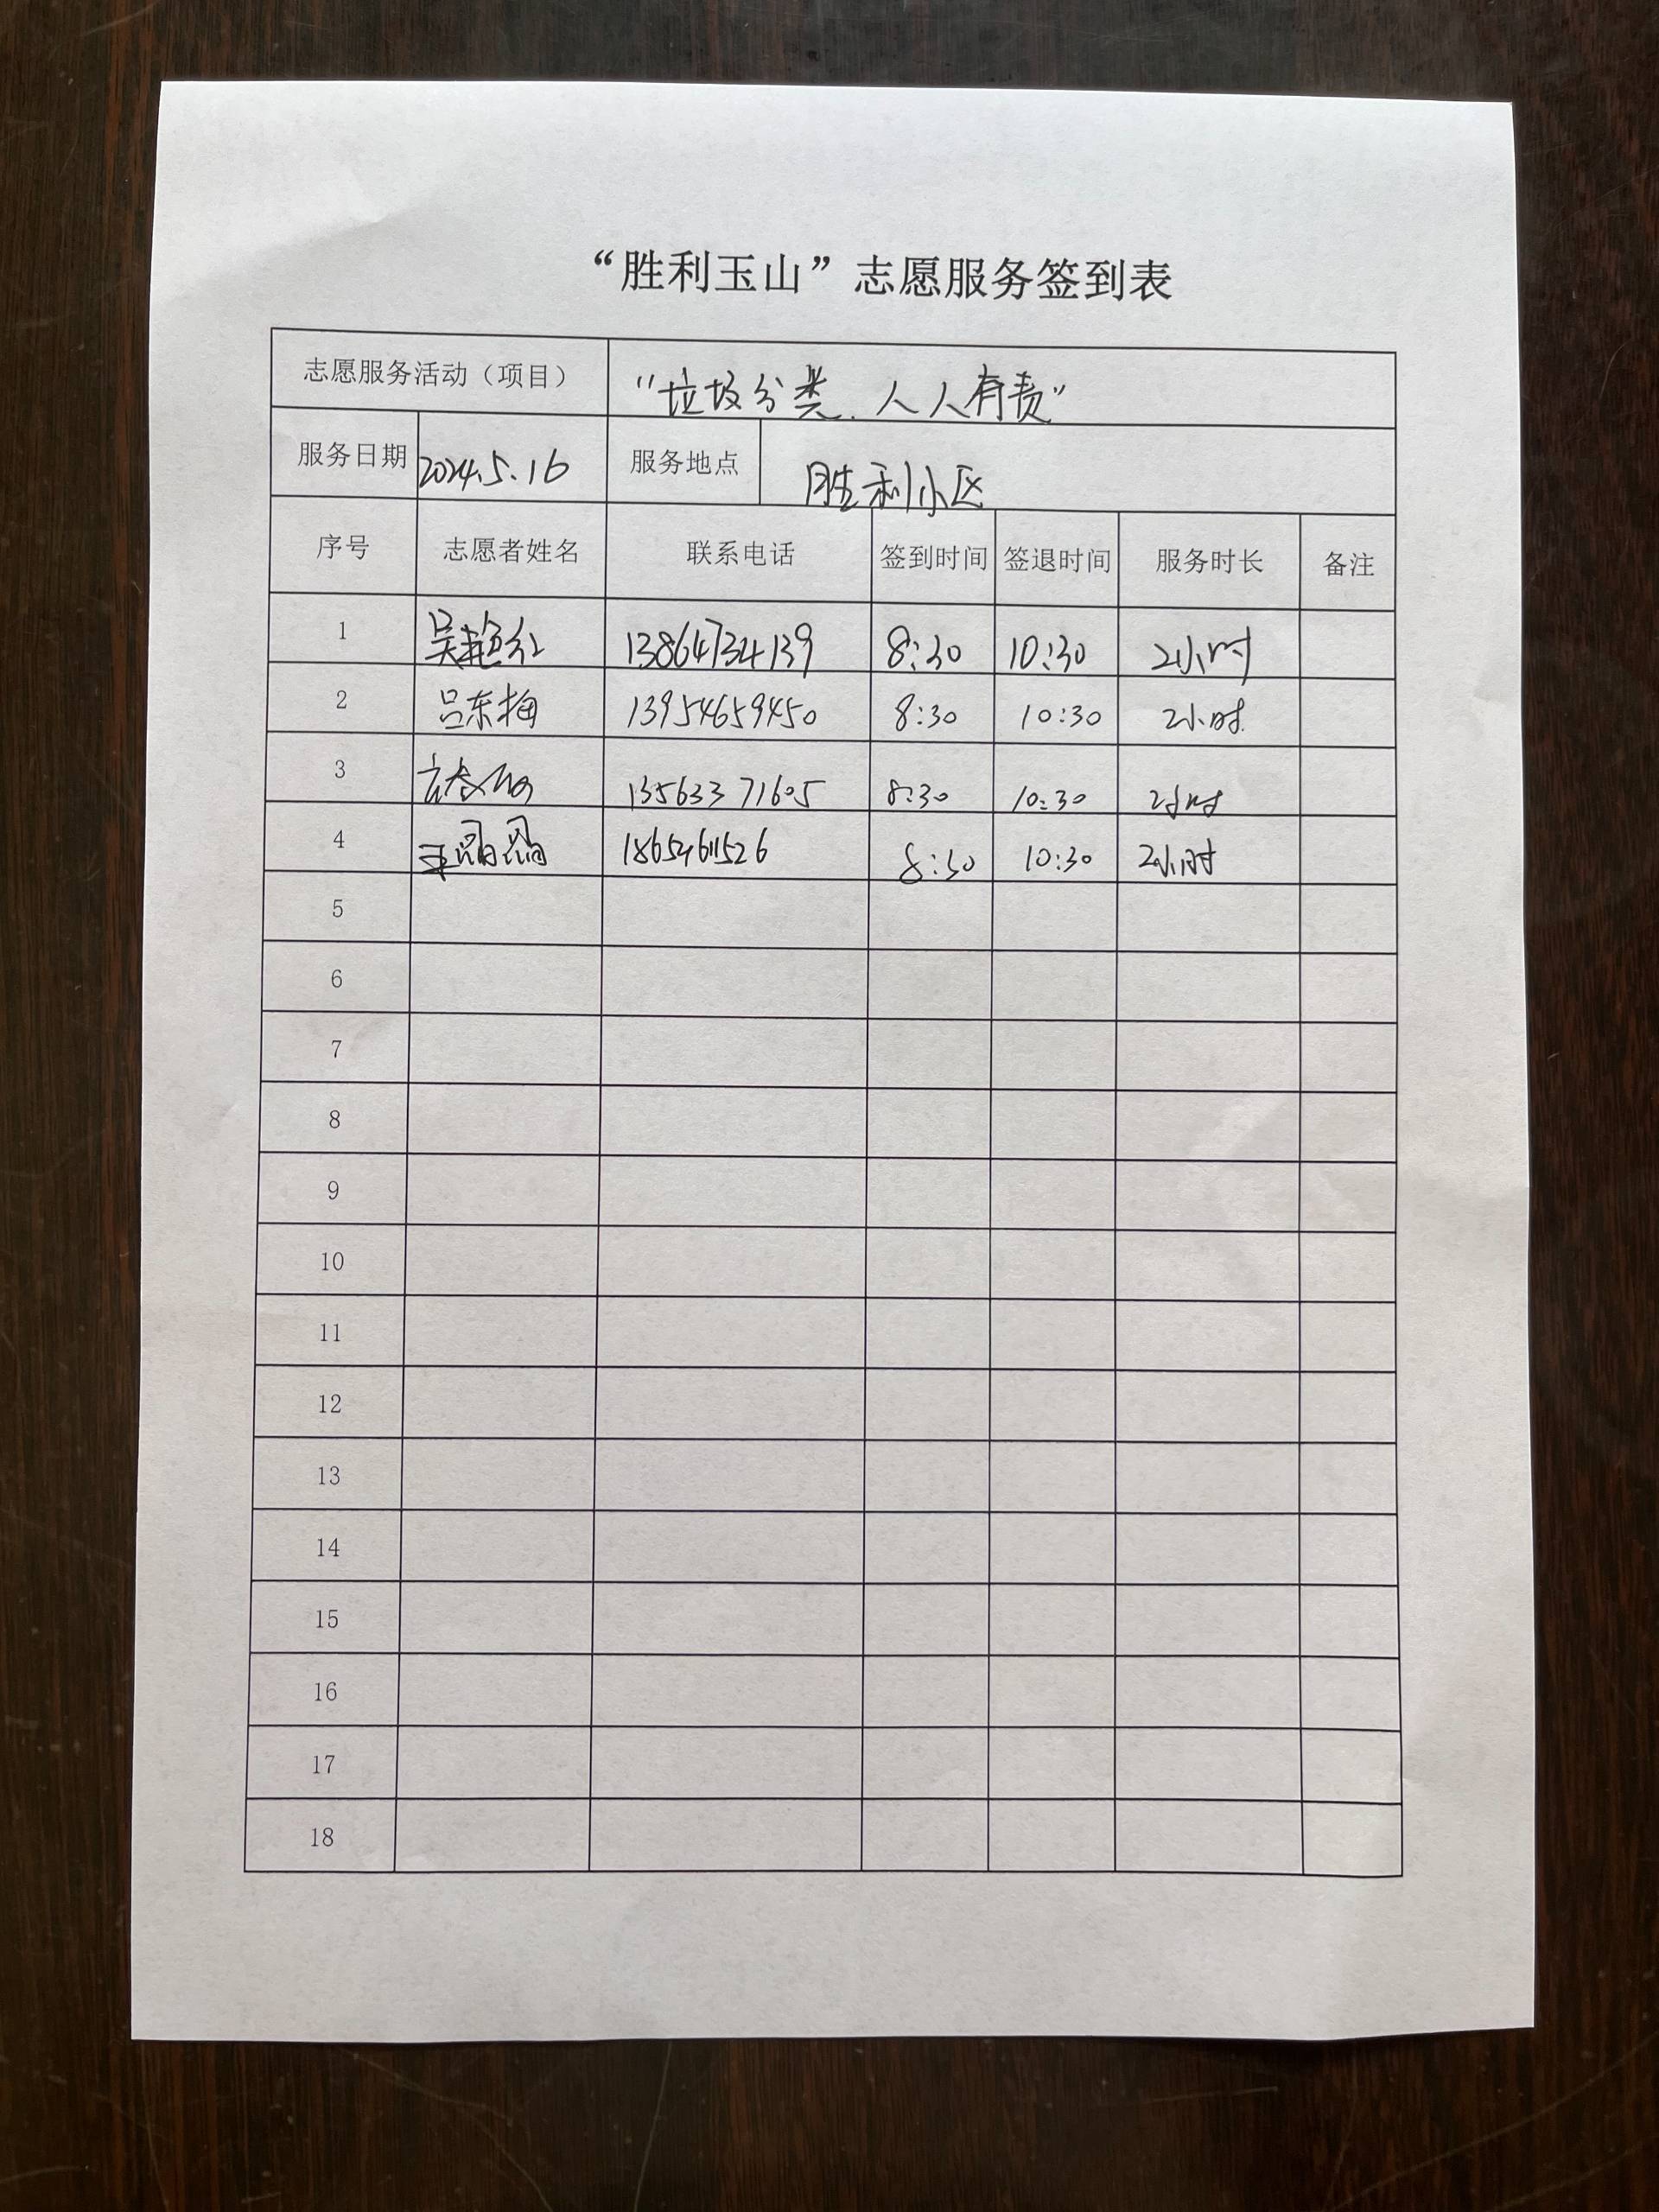 “胜利玉山”志愿服务签到表
志愿服务活动（项目） “垃圾分类.人人有责”
服务日期 2024.5.16 服务地点 胜利小区
序号 志愿者姓名 联系电话 签到时间 签退时间 服务时长 备注
1 吴艳红 13864734139 8:30 10:30 2小时
2 吕东梅 13954659450 8:30 10:30 2小时.
3 13563371605 8:30 10:30 2小时
4 18654611526 8:30 10:30 2小时
5
6
7
8
9
10
11
12
13
14
15
16
17
18